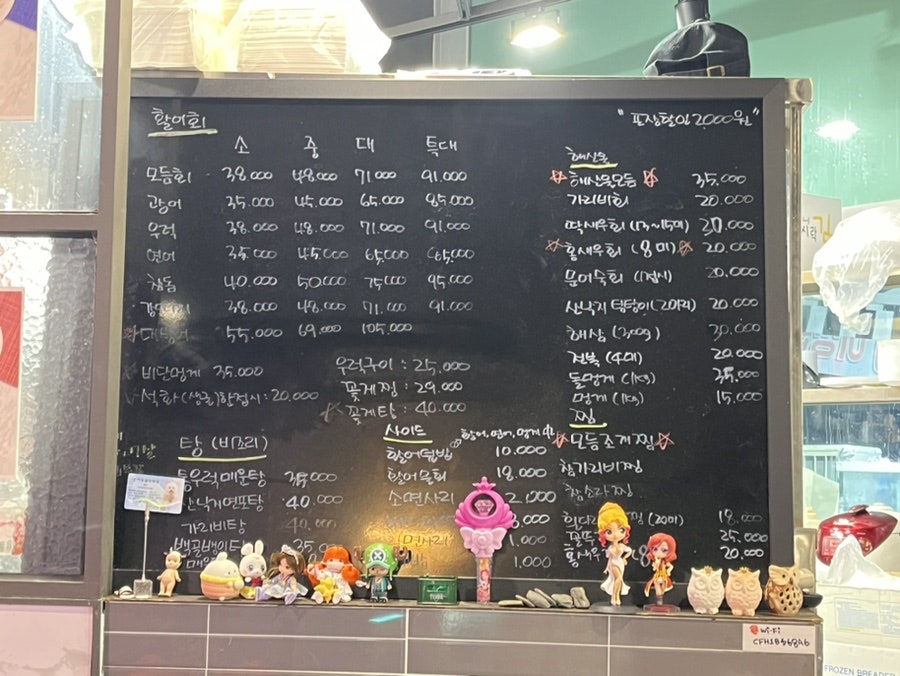 활어회
"포장할인 2,000원"
소 중 대 특대
모듬회 38.000 48.000 71.000 91.000
광어 35.000 45.000 65.000 85.000
우럭 38.000 48.000 71.000 91.000
연어 35.000 45.000 65.000
참돔 40.000 50.000 75.000 95.000
38.000 48.000 71.000 91.000
55.000 69.000 105.000
비단멍게 35.000
석화(생굴)한접시:20.000
우럭구이 : 25.000
꽃게찜 : 29.000
꽃게탕 : 40.000
해산물
해산물모듬 35.000
가리비회 20.000
딱새우회 (13~15미) 30.000
활새우회 (8미) 20.000
문어숙회 (1접시) 20.000
산낙지 탕탕이(2마리) 20.000
해삼 (300g) 30.000
전복 (4미) 20.000
돌멍게 (1kg) 35.000
멍게 (1kg) 15.000
찜
모듬조개찜
참가리비찜
참소라찜
(20미) 18.000
25.000
20.000
탕 (비조리)
통우럭매운탕
산낙지연포탕 40.000
가리비탕 40.000
35.000
사이드
활어, 연어, 멍게 中
활어덮밥 10.000
활어물회 18.000
소면사리 2.000
1.000
1.000
Wi-Fi
CFH1B568A6
FROZEN BREADED